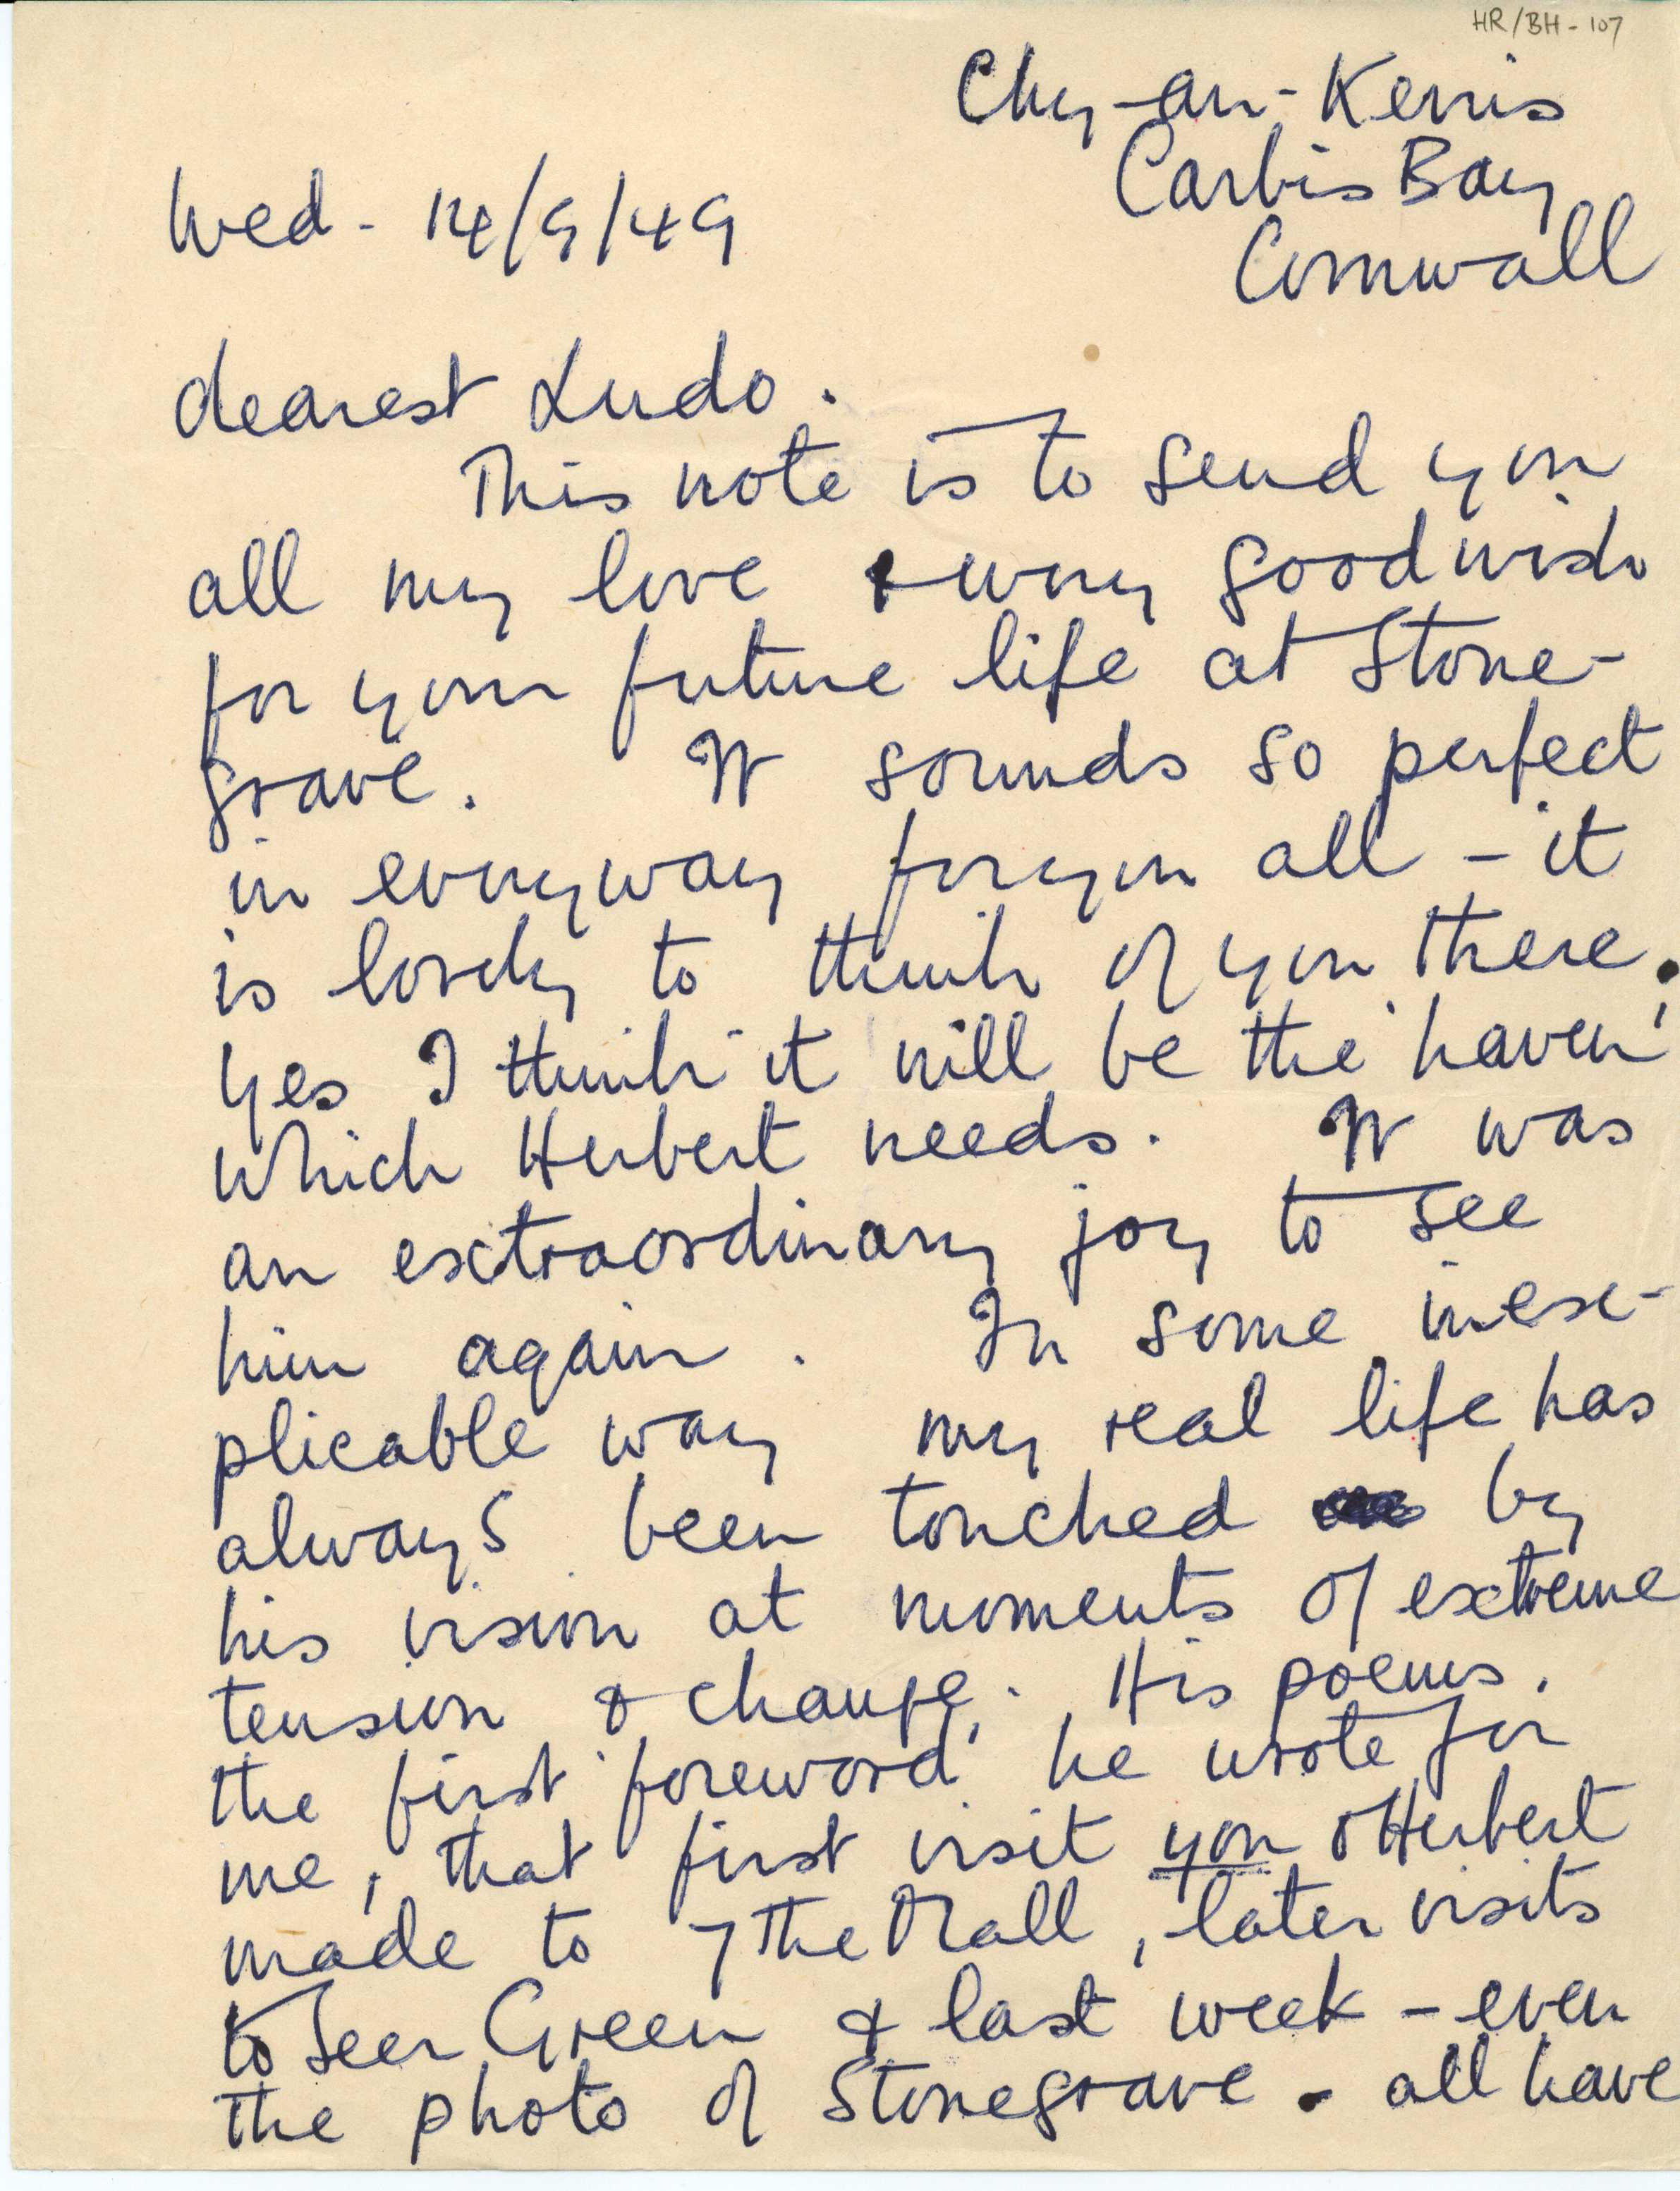 HR/BH-107
Chy-an-Kerris
Carbis Bay
Cornwall
Wed - 14/9/49
dearest Ludo.
This note is to send you
all my love & every good wish
for your future life at Stone-
grave. It sounds so perfect
in everyway for you all - it
is lovely to think of you there.
Yes I think it will be the 'haven'
which Herbert needs. It was
an extraordinary joy to see
him again. In some inex-
plicable way my real life has
always been touched by
his vision at moments of extreme
tension & change. His poems,
the first 'foreword' he wrote for
me, that first visit you & Herbert
made to 7 The Mall, later visits
to Seer Green & last week - even
the photo of Stonegrave - all have